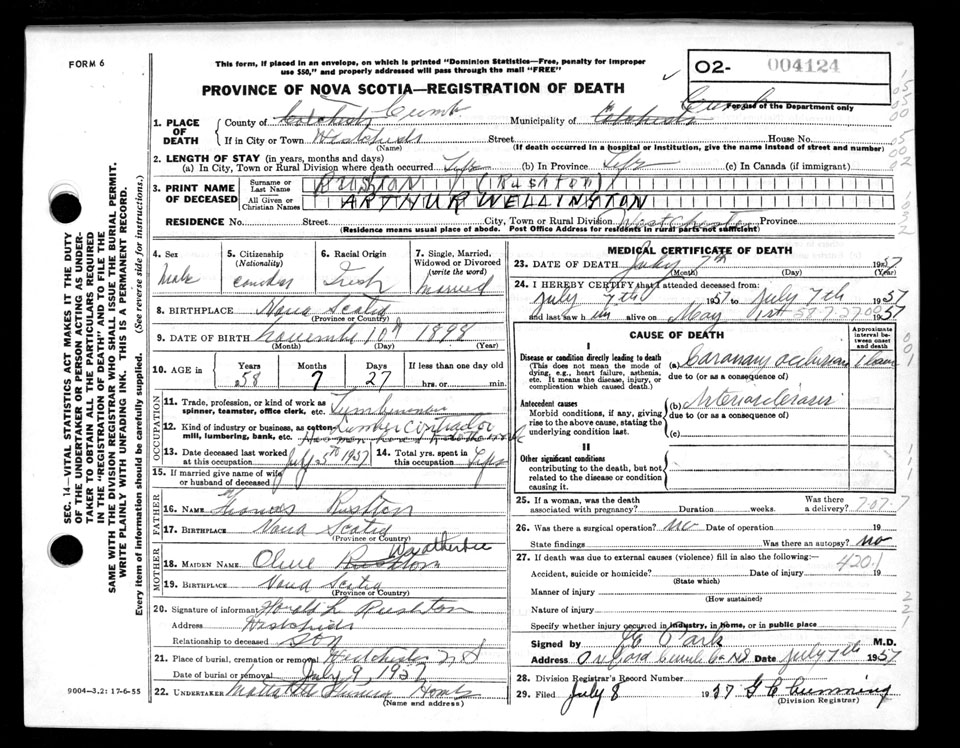 FORM 6
This form, if placed in an envelope, on which is printed "Dominion Statistics—Free, penalty for improper
use $50," and properly addressed will pass through the mail "FREE"
O2- 004124
PROVINCE OF NOVA SCOTIA—REGISTRATION OF DEATH
For use of the Department only
1. PLACE OF DEATH
County of Colchester Cumb. Municipality of Colchester Cumb
If in City or Town Street House No.
(Name) (If death occurred in a hospital or institution, give the name instead of street and number)
2. LENGTH OF STAY (in years, months and days)
(a) In City, Town or Rural Division where death occurred Life (b) In Province Life (c) In Canada (if immigrant)
3. PRINT NAME OF DECEASED
Surname or Last Name RUSHTON (Rushton)
All Given or Christian Names ARTHUR WELLINGTON
RESIDENCE No. Street City, Town or Rural Division Westchester Province
(Residence means usual place of abode. Post Office Address for residents in rural parts not sufficient)
4. Sex Male
5. Citizenship (Nationality)
6. Racial Origin Irish
7. Single, Married, Widowed or Divorced (write the word) Married
8. BIRTHPLACE Nova Scotia
(Province or Country)
9. DATE OF BIRTH November 10th 1898
(Month) (Day) (Year)
10. AGE in Years 58 Months 7 Days 27 If less than one day old hrs. or min.
OCCUPATION
11. Trade, profession, or kind of work as spinner, teamster, office clerk, etc.
12. Kind of industry or business, as cotton mill, lumbering, bank, etc. Lumber Contractor
13. Date deceased last worked at this occupation July 5th 1957
14. Total yrs. spent in this occupation Life
15. If married give name of wife or husband of deceased
FATHER
16. NAME Rushton
17. BIRTHPLACE Nova Scotia
(Province or Country)
MOTHER
18. MAIDEN NAME Olive Weatherbee
19. BIRTHPLACE Nova Scotia
(Province or Country)
20. Signature of informant Harold L Rushton
Address
Relationship to deceased Son
21. Place of burial, cremation or removal Westchester N S
Date of burial or removal July 9 1957
22. UNDERTAKER Funeral Home
(Name and address)
MEDICAL CERTIFICATE OF DEATH
23. DATE OF DEATH July 7th 1957
(Month) (Day) (Year)
24. I HEREBY CERTIFY that I attended deceased from:
July 7th 1957 to July 7th 1957
and last saw him alive on May 1st 1957
CAUSE OF DEATH
Approximate interval between onset and death
I
Disease or condition directly leading to death
(This does not mean the mode of dying, e.g., heart failure, asthenia, etc. It means the disease, injury, or complication which caused death.)
(a) Coronary occlusion 1 hour
due to (or as a consequence of)
Antecedent causes
Morbid conditions, if any, giving rise to the above cause, stating the underlying condition last.
(b) Arteriosclerosis
due to (or as a consequence of)
(c)
II
Other significant conditions
contributing to the death, but not related to the disease or condition causing it.
25. If a woman, was the death associated with pregnancy? Duration weeks. Was there a delivery?
26. Was there a surgical operation? no Date of operation 19
State findings Was there an autopsy? no
27. If death was due to external causes (violence) fill in also the following:—
420.1
Accident, suicide or homicide? Date of injury 19
(State which)
Manner of injury
(How sustained)
Nature of injury
Specify whether injury occurred in industry, in home, or in public place
Signed by M.D.
Address Oxford Cumb Co NS Date July 7th 1957
28. Division Registrar's Record Number
29. Filed July 8 1957 G C Cumming
(Division Registrar)
9004—3.2: 17-6-55
SEC. 14—VITAL STATISTICS ACT MAKES IT THE DUTY
OF THE UNDERTAKER OR PERSON ACTING AS UNDERTAKER TO OBTAIN ALL THE PARTICULARS REQUIRED
IN THE "REGISTRATION OF DEATH" AND TO FILE THE
SAME WITH THE DIVISION REGISTRAR WHO SHALL ISSUE THE BURIAL PERMIT.
WRITE PLAINLY WITH UNFADING INK. THIS IS A PERMANENT RECORD.
Every item of information should be carefully supplied. (See reverse side for instructions.)